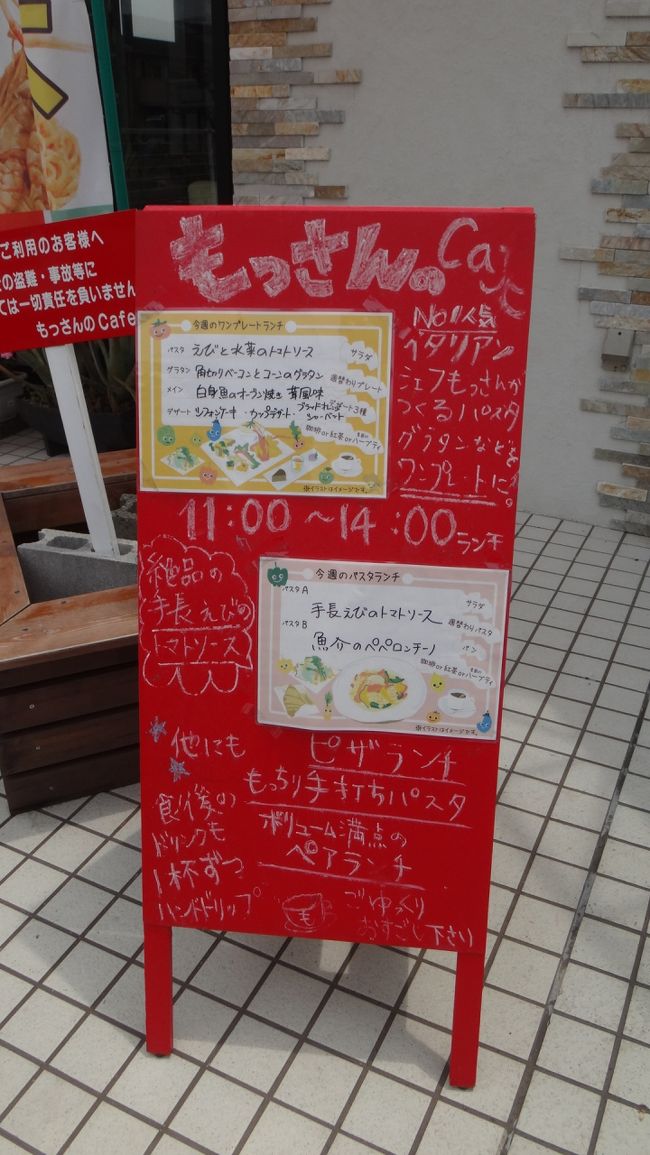 ご利用のお客様へ
の盗難・事故等に
ては一切責任を負いません
もっさんのCafe
もっさんの Cafe
No.1人気
イタリアン
シェフもっさんが
つくるパスタ
グラタンなどを
ワンプレートに。
今週のワンプレートランチ
パスタ えびと水菜のトマトソース
サラダ
グラタン 角切りベーコンとコーンのグラタン
週替わりプレート
メイン 白身魚のオーブン焼き 茸風味
デザート シフォンケーキ・カップデザート・ブラッドオレンジシャーベット
デザート3種
珈琲or紅茶orハーブティ
※イラストはイメージです。
11:00〜14:00 ランチ
絶品の
手長えびの
トマトソース
今週のパスタランチ
パスタA
手長えびのトマトソース
サラダ
パスタB
週替わりパスタ
魚介のペペロンチーノ
パン
珈琲or紅茶orハーブティ
※イラストはイメージです。
他にも
ピザランチ
もっちり手打ちパスタ
ボリューム満点の
ペアランチ
食後の
ドリンクも
1杯ずつ
ハンドドリップ
も
ごゆっくり
おすごし下さい